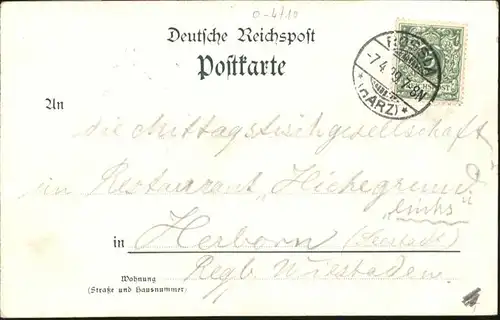 0-4710
Deutsche Reichspost
Postkarte
ROSSLA
-7.4.
7-8N
*(HARZ)*
An
die Mittagstischgesellschaft
im Restaurant „Hickegrund"
„links"
in Herborn
Regb. Wiesbaden
Wohnung
(Straße und Hausnummer)